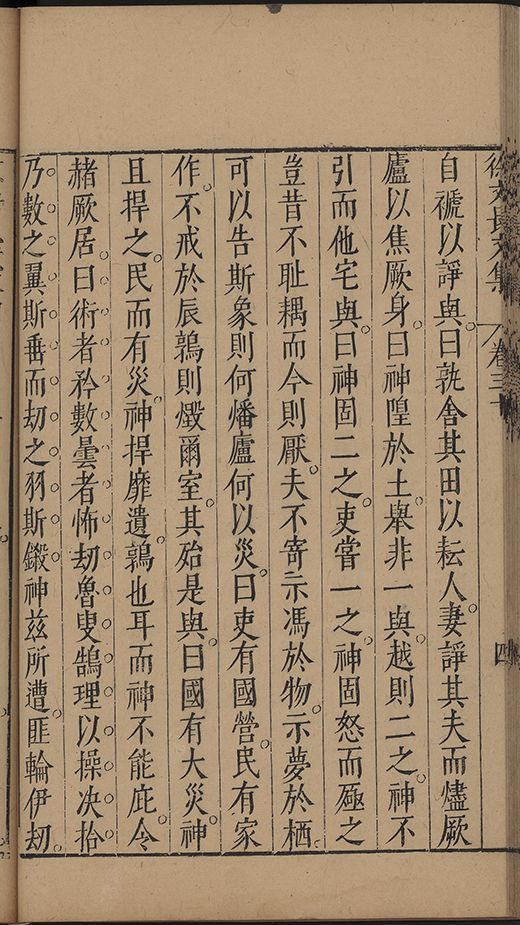 徐文長文集 卷三十 四
自褫以諍與曰孰舍其田以耘人妻諍其夫而燼厥
廬以焦厥身曰神隍於土舉非一與越則二之神不
引而他宅與曰神固二之吏嘗一之神固怒而殛之
豈昔不恥耦而今則厭夫不寄示馮於物示夢於栖
可以告斯象則何燔廬何以災曰吏有國營民有家
作不戒於辰鶉則燬爾室其殆是與曰國有大災神
且捍之民而有災神捍靡遺鶉也耳而神不能庇令
赭厥居曰術者矜數曇者怖劫魯叟鵠理以操决拾
乃數之翼斯垂而劫之羽斯鎩神茲所遭匪輪伊刧